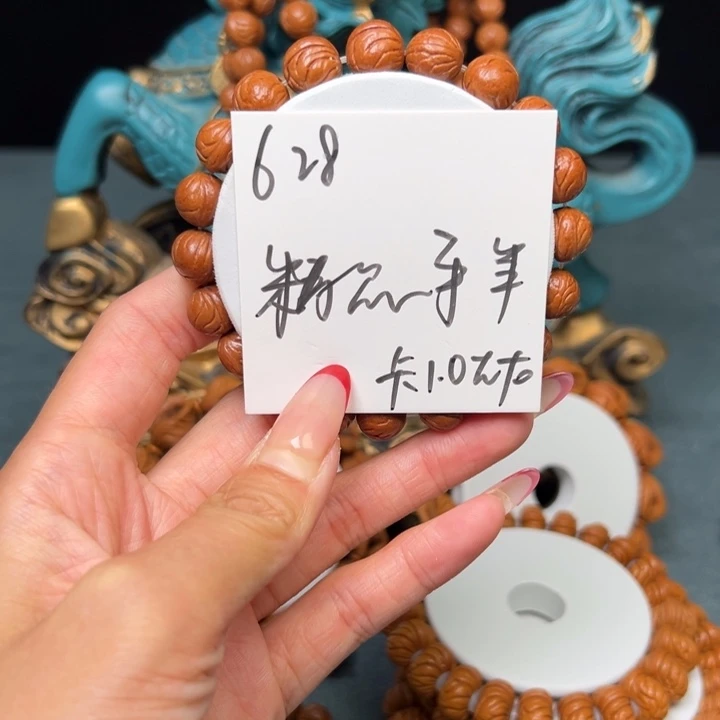 628
精品手羊
卡1.0左右